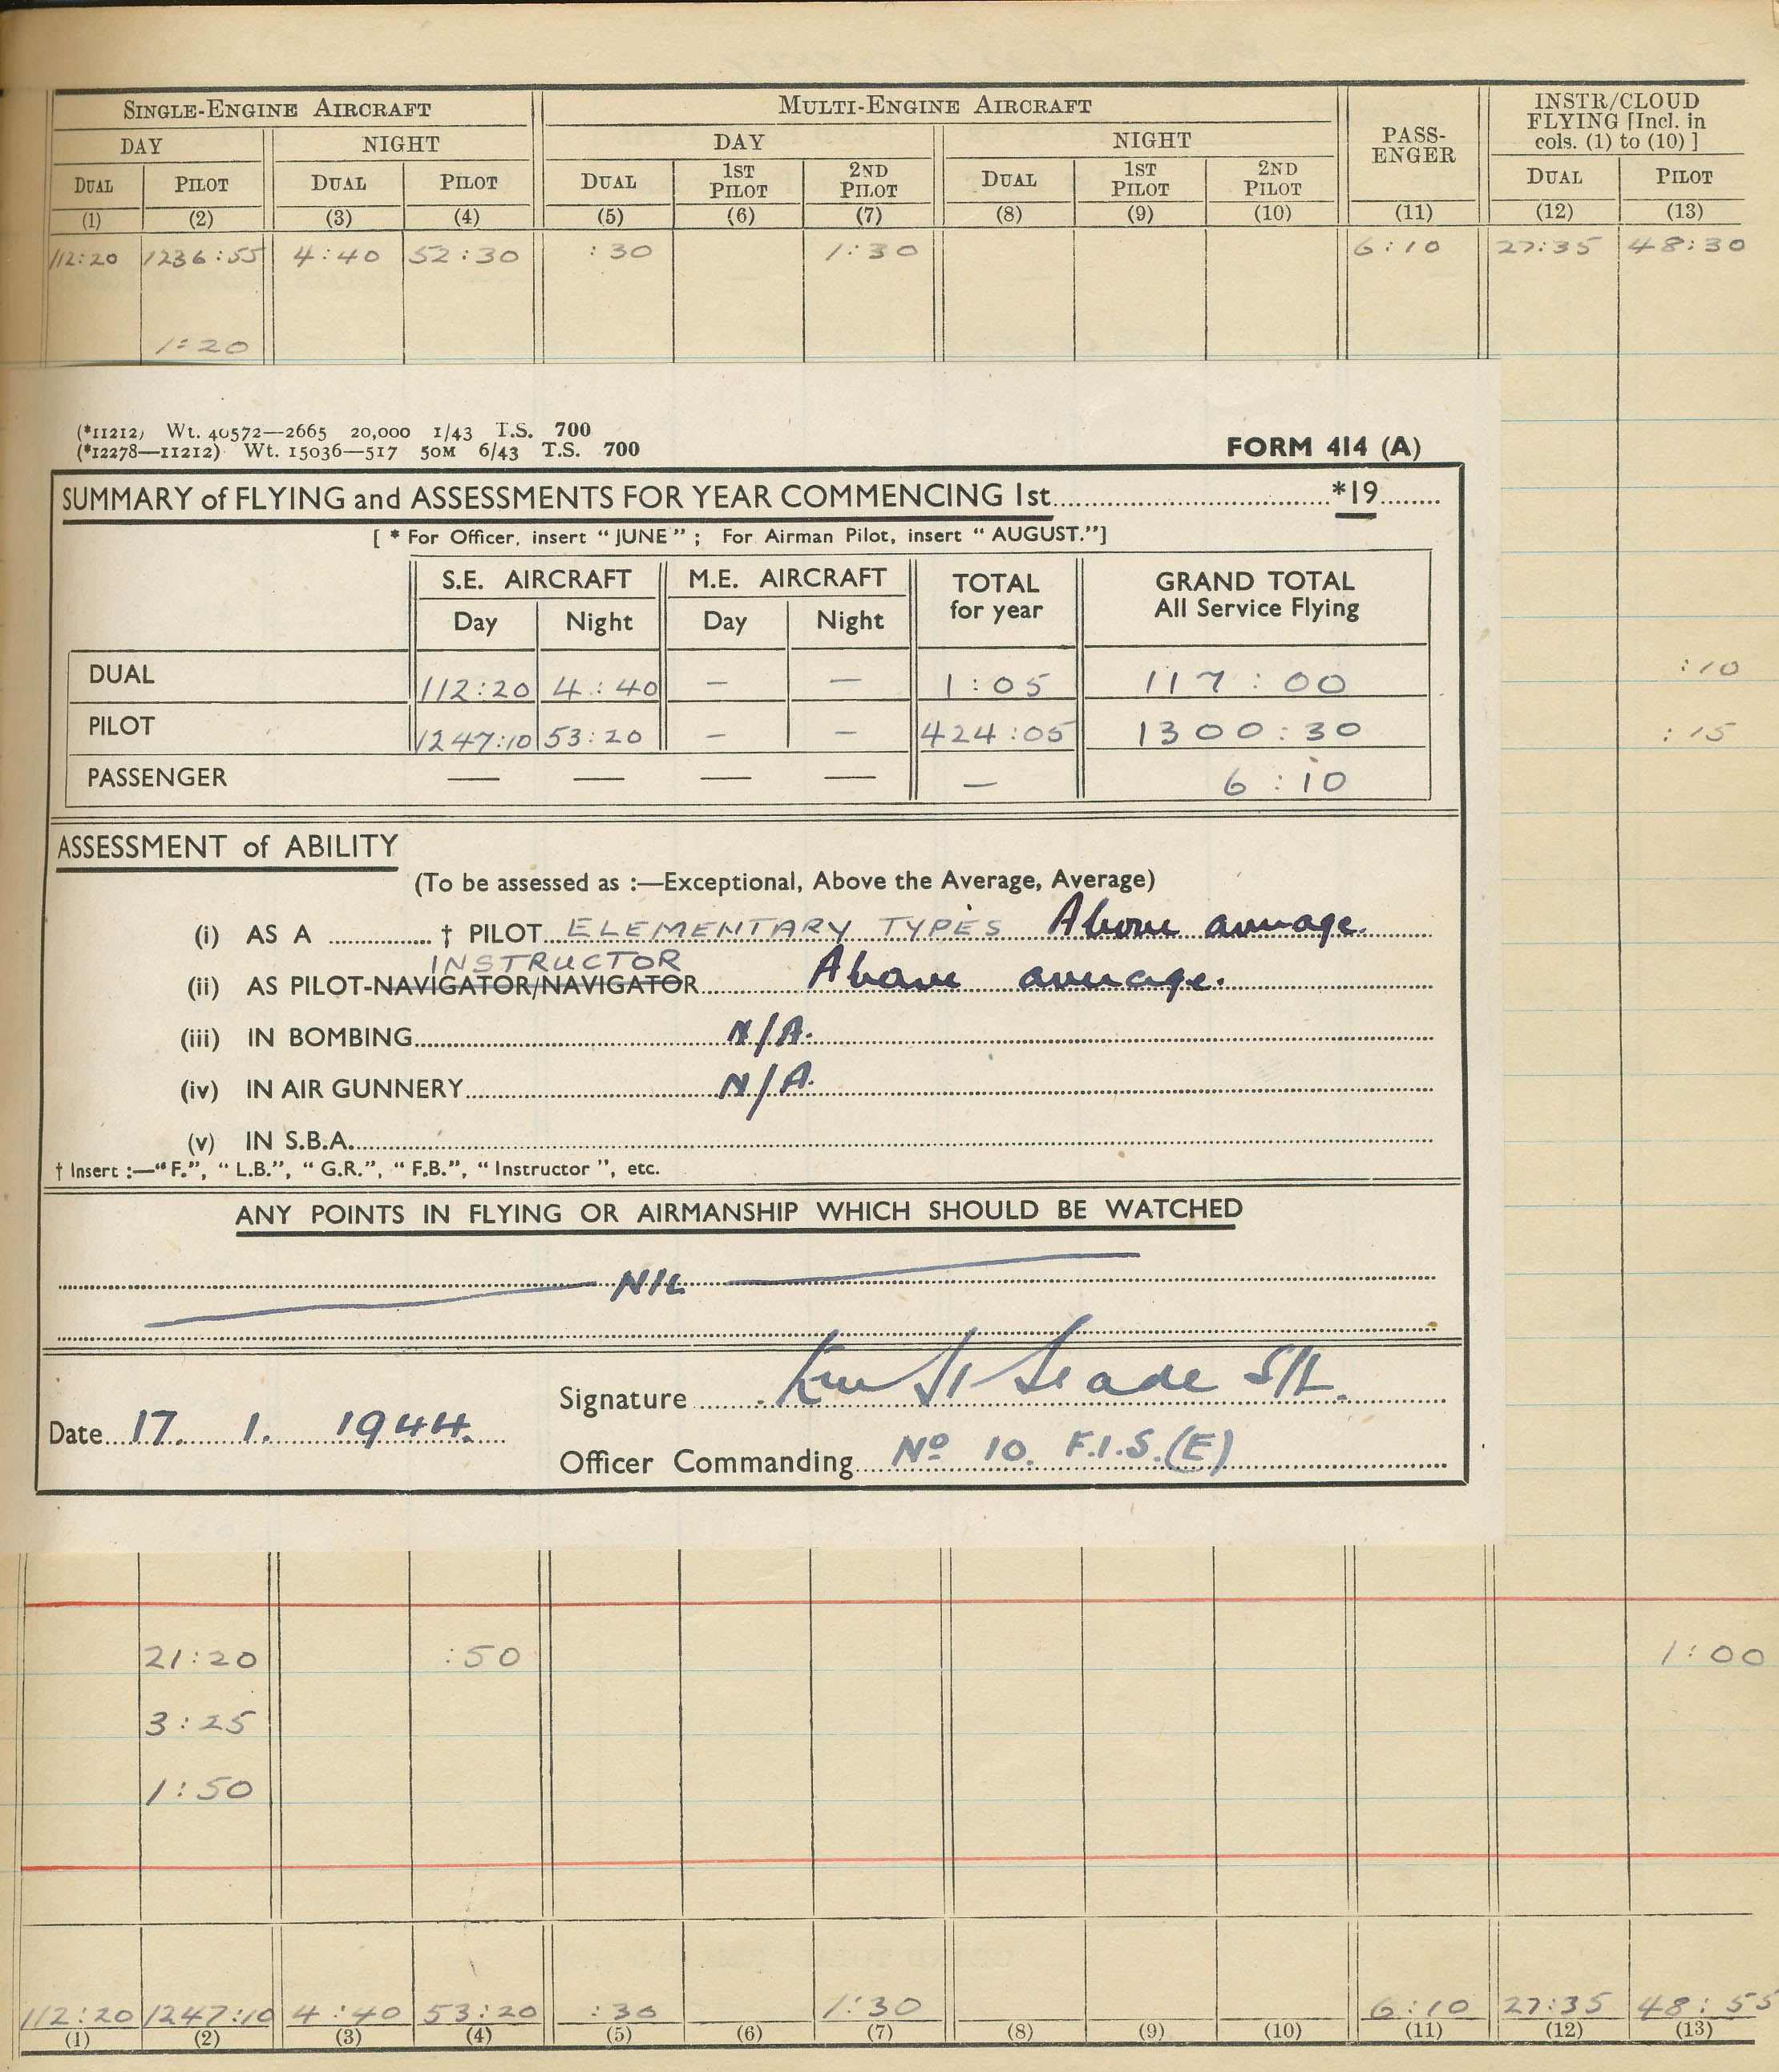 SINGLE-ENGINE AIRCRAFT MULTI-ENGINE AIRCRAFT PASS-ENGER INSTR/CLOUD FLYING [Incl. in cols. (1) to (10)]
DAY NIGHT DAY NIGHT
DUAL PILOT DUAL PILOT DUAL 1ST PILOT 2ND PILOT DUAL 1ST PILOT 2ND PILOT DUAL PILOT
(1) (2) (3) (4) (5) (6) (7) (8) (9) (10) (11) (12) (13)
112:20 1236:55 4:40 52:30 :30 1:30 6:10 27:35 48:30
1:20
(*11212) Wt. 40572—2665 20,000 1/43 T.S. 700
(*12278—11212) Wt. 15036—517 50M 6/43 T.S. 700
FORM 414 (A)
SUMMARY of FLYING and ASSESSMENTS FOR YEAR COMMENCING 1st *19
[ * For Officer, insert "JUNE" ; For Airman Pilot, insert "AUGUST."]
S.E. AIRCRAFT M.E. AIRCRAFT TOTAL for year GRAND TOTAL All Service Flying
Day Night Day Night
DUAL 112:20 4:40 — — 1:05 117:00
:10
PILOT 1247:10 53:20 — — 424:05 1300:30
:15
PASSENGER — — — — — 6:10
ASSESSMENT of ABILITY
(To be assessed as :—Exceptional, Above the Average, Average)
(i) AS A † PILOT ELEMENTARY TYPES Above average.
INSTRUCTOR
(ii) AS PILOT-NAVIGATOR/NAVIGATOR Above average.
(iii) IN BOMBING N/A.
(iv) IN AIR GUNNERY N/A.
(v) IN S.B.A.
† Insert :—"F.", "L.B.", "G.R.", "F.B.", "Instructor", etc.
ANY POINTS IN FLYING OR AIRMANSHIP WHICH SHOULD BE WATCHED
NIL
Signature S/L.
Date 17. 1. 1944.
Officer Commanding No 10. F.I.S.(E)
21:20 :50 1:00
3:25
1:50
112:20 1247:10 4:40 53:20 :30 1:30 6:10 27:35 48:55
(1) (2) (3) (4) (5) (6) (7) (8) (9) (10) (11) (12) (13)